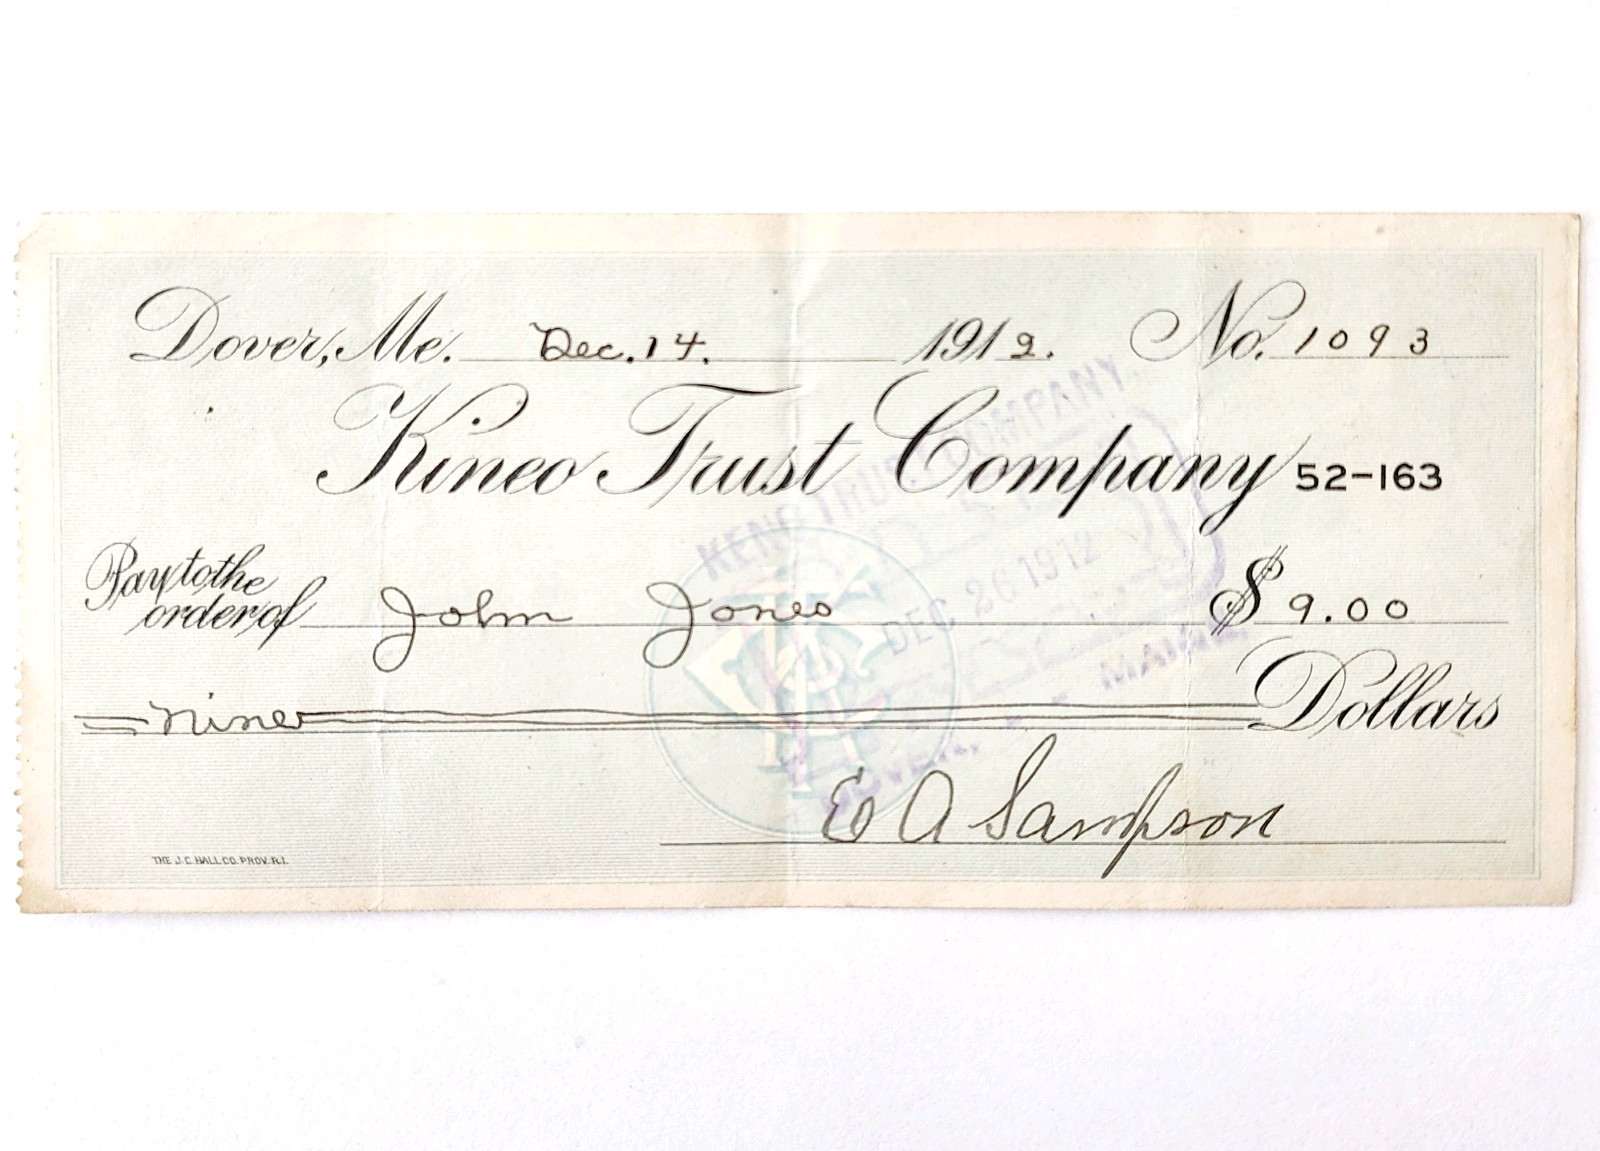 Dover, Me. Dec. 14. 1912. No. 1093
Kineo Trust Company 52-163
Pay to the
order of John Jones $ 9.00
Nine Dollars
E A Sampson
THE J.C. HALL CO. PROV. R.I.
KENO TRUST COMPANY
DEC 26 1912
DOVER, MAINE